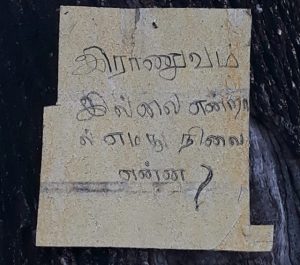 இராணுவம்
இல்லை என்றா
ல் எமது நிலை
என்ன ?